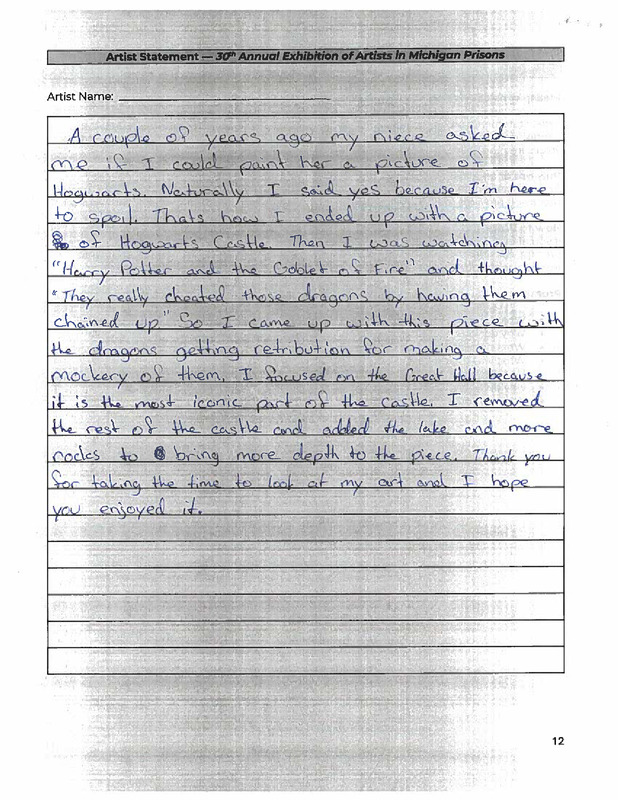 Artist Statement — 30th Annual Exhibition of Artists in Michigan Prisons
Artist Name:
A couple of years ago my niece asked
me if I could paint her a picture of
Hogwarts. Naturally I said yes because I'm here
to spoil. Thats how I ended up with a picture
of Hogwarts Castle. Then I was watching
"Harry Potter and the Goblet of Fire" and thought
"They really cheated those dragons by having them
chained up" So I came up with this piece with
the dragons getting retribution for making a
mockery of them. I focused on the Great Hall because
it is the most iconic part of the castle. I removed
the rest of the castle and added the lake and more
rocks to bring more depth to the piece. Thank you
for taking the time to look at my art and I hope
you enjoyed it.
12